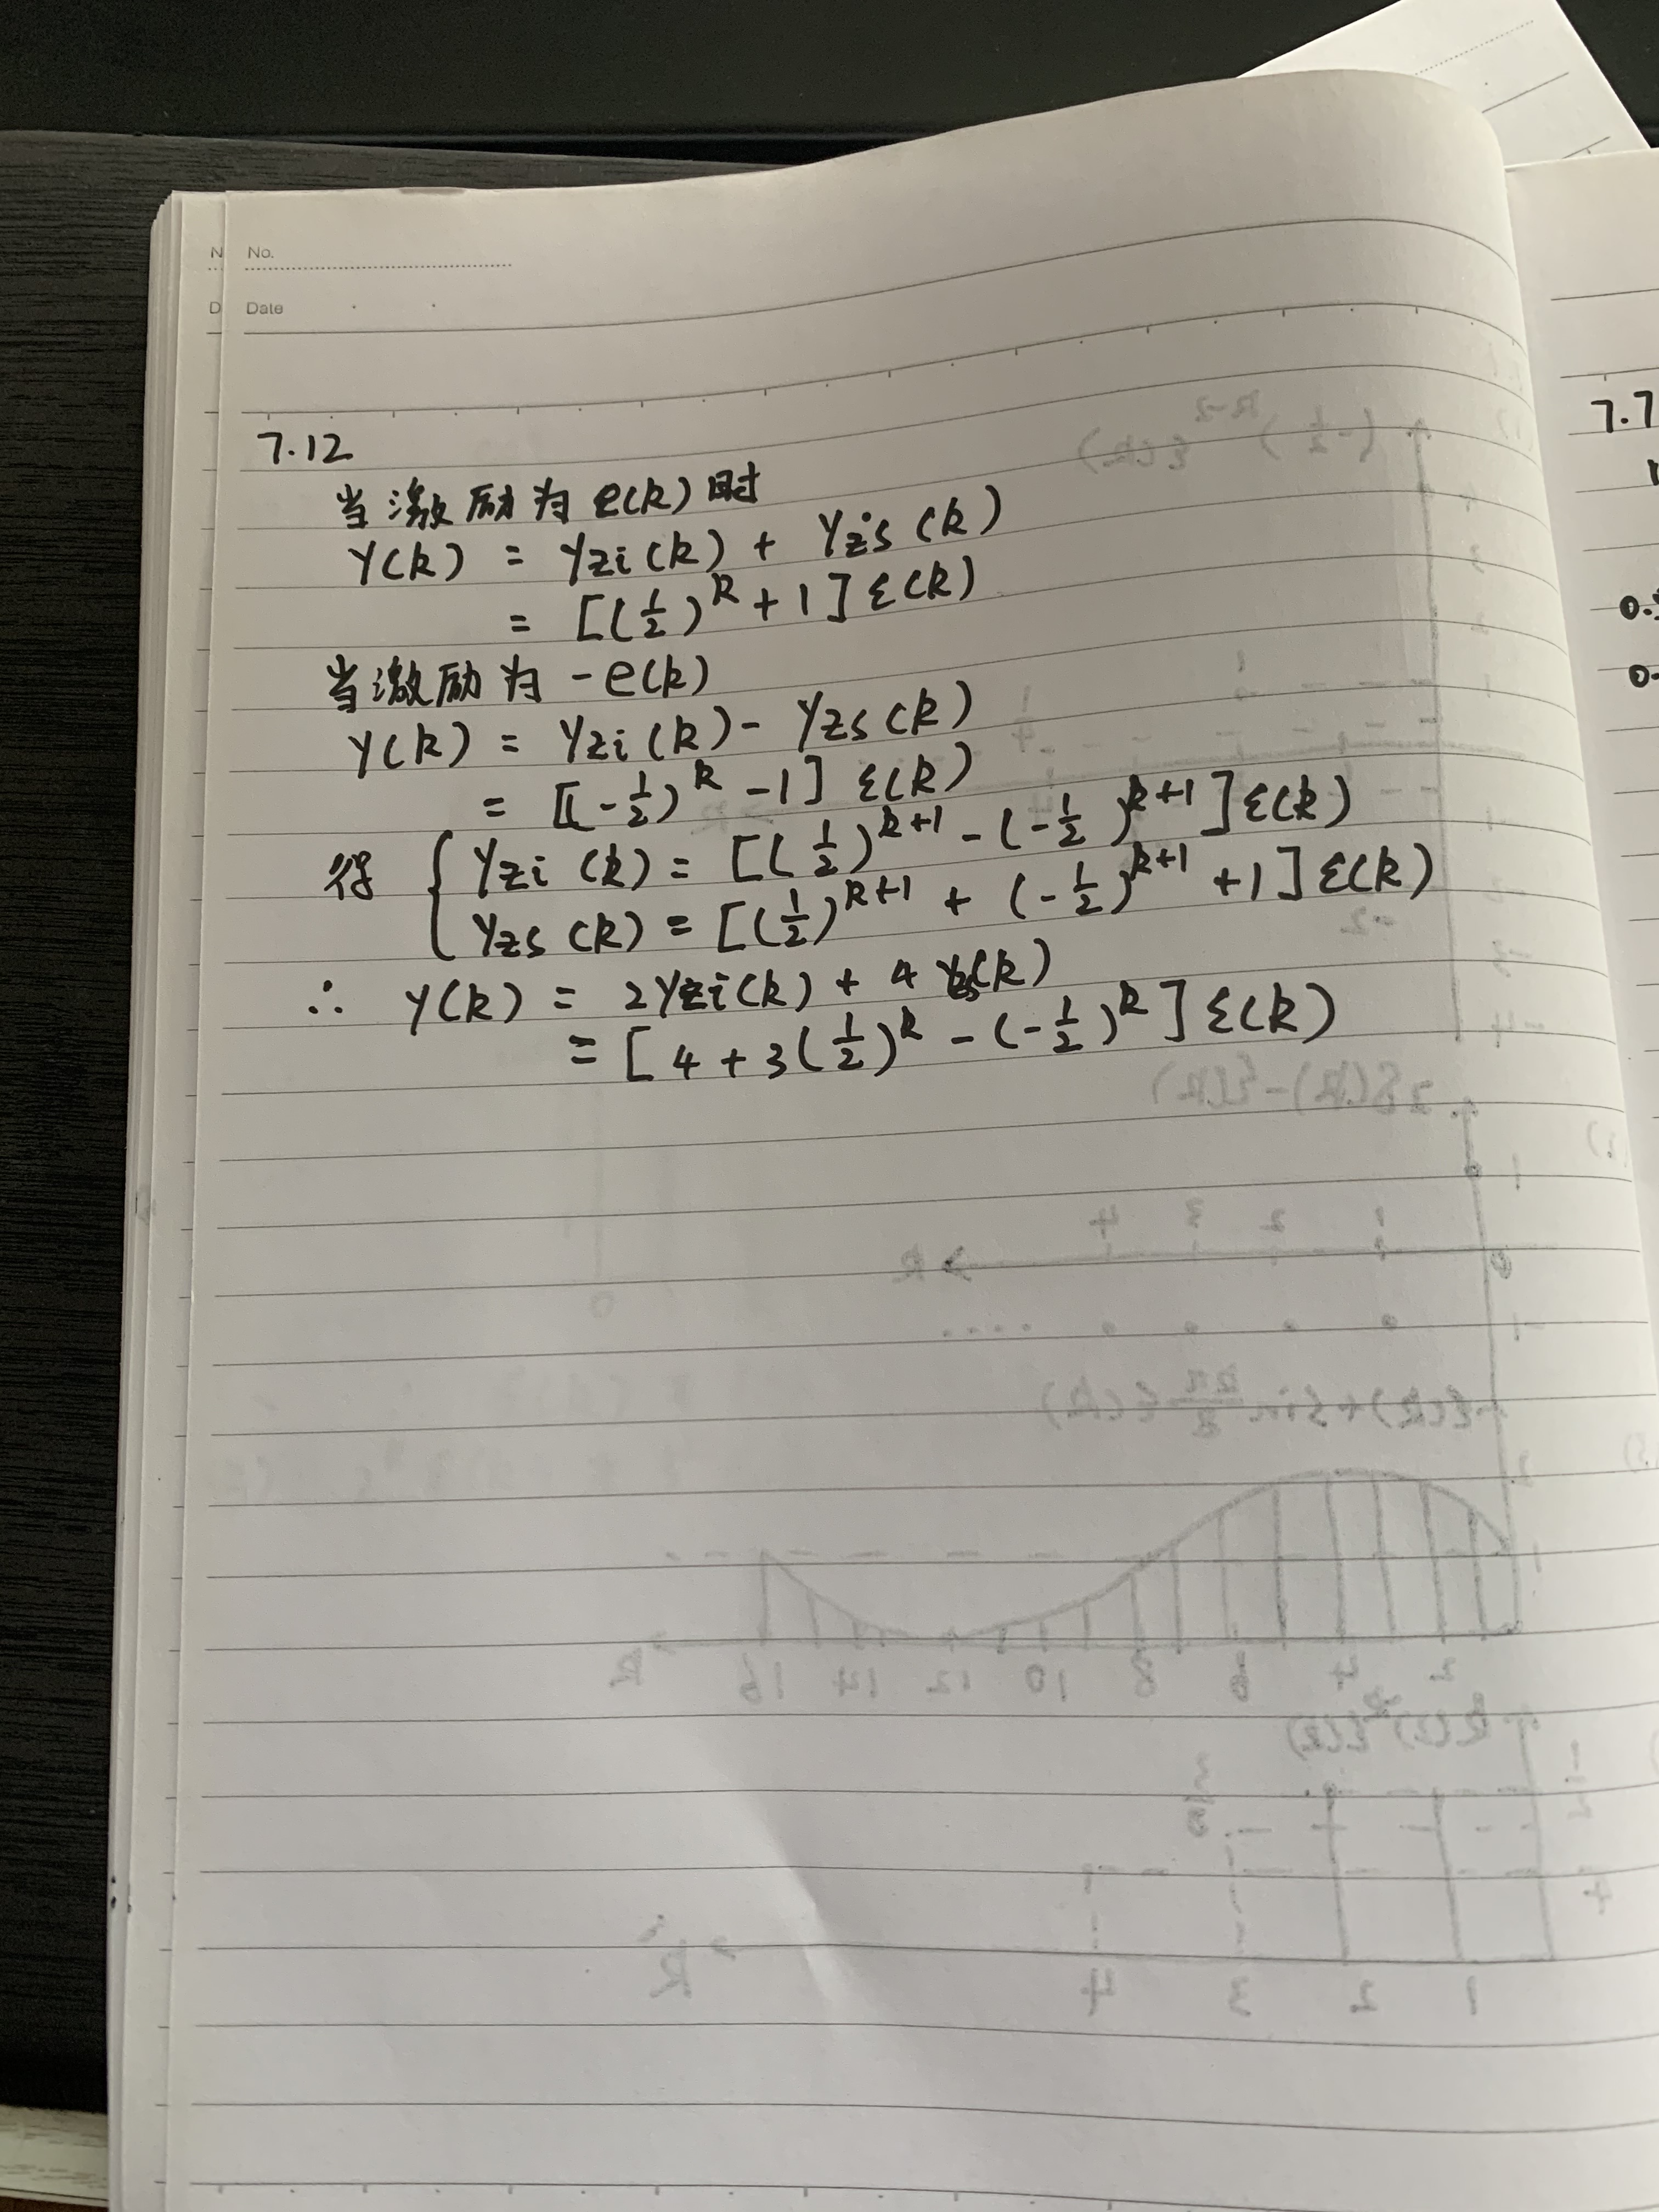 No.
Date
7.12
当激励为 e(k) 时
y(k) = yzi(k) + yzs(k)
= [(1/2)^k + 1] ε(k)
当激励为 -e(k)
y(k) = yzi(k) - yzs(k)
= [(-1/2)^k - 1] ε(k)
得 { yzi(k) = [(1/2)^(k+1) - (-1/2)^(k+1)] ε(k)
yzs(k) = [(1/2)^(k+1) + (-1/2)^(k+1) + 1] ε(k)
∴ y(k) = 2yzi(k) + 4yzs(k)
= [4 + 3(1/2)^k - (-1/2)^k] ε(k)
7.7